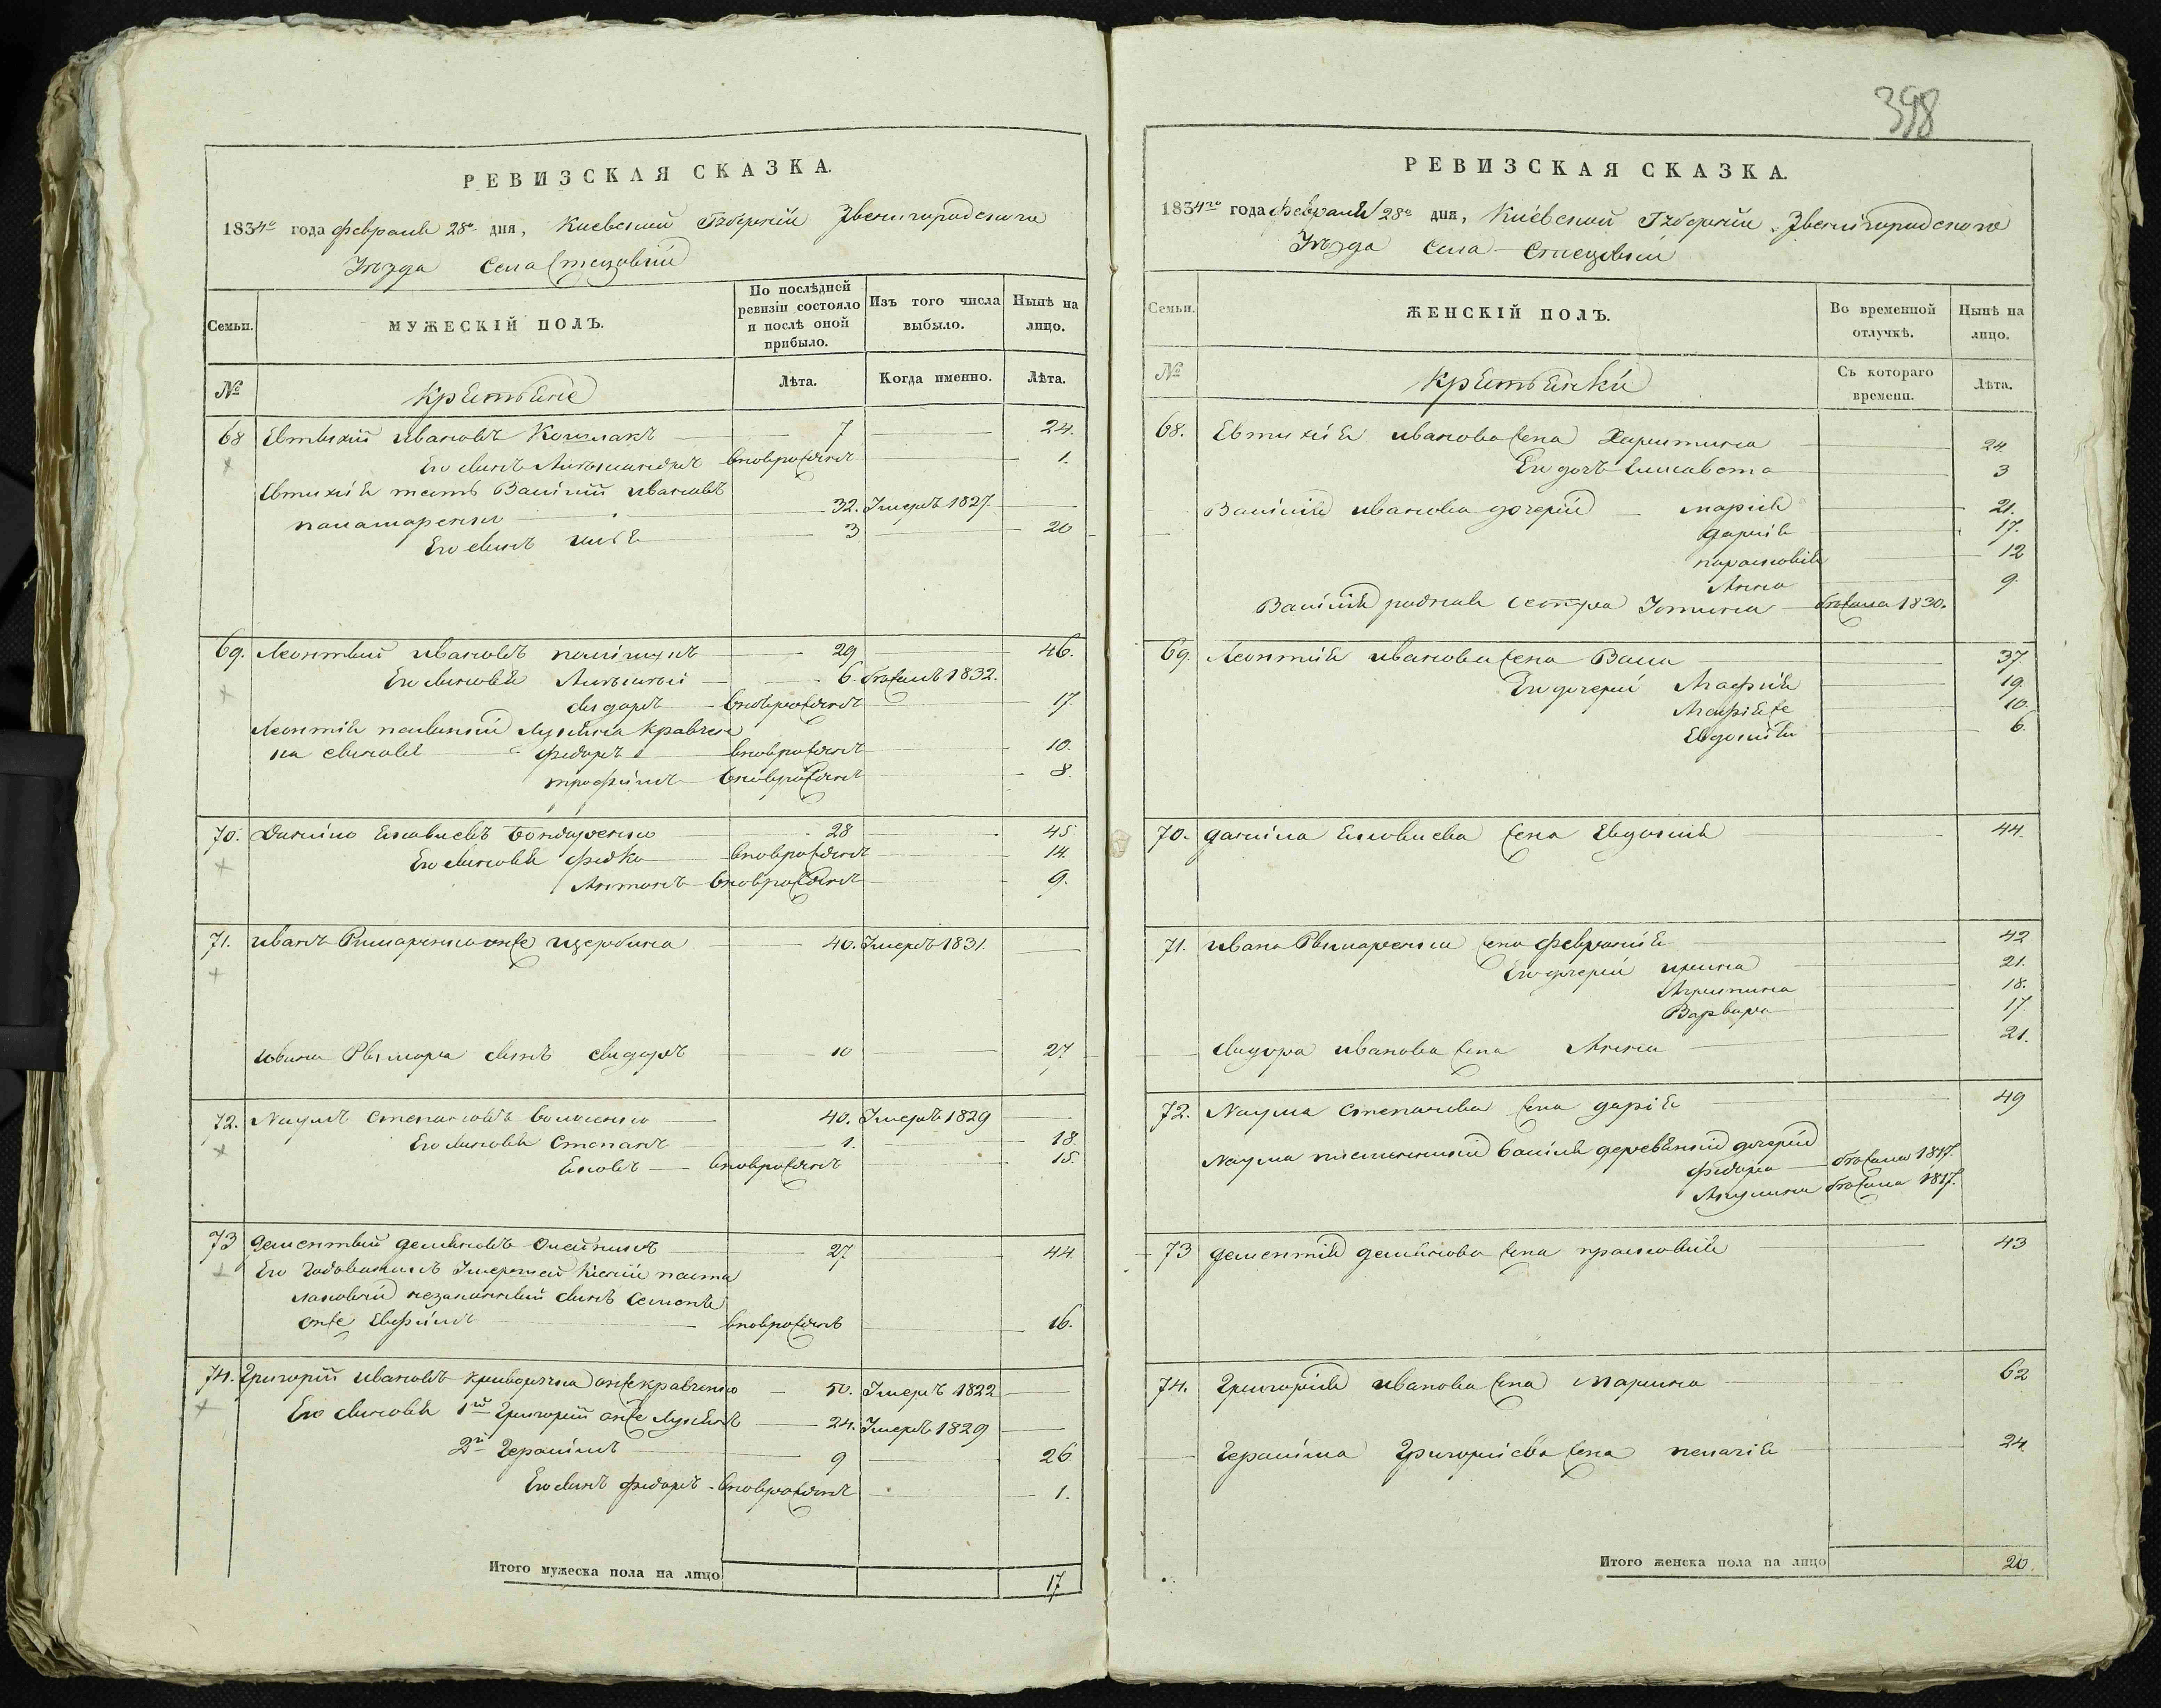 РЕВИЗСКАЯ СКАЗКА.
1834го года февраля 28го дня, Киевской Губернии Звенигородского
Уезда Села Стецовки
Семьи.
МУЖЕСКІЙ ПОЛЪ.
По послѣдней ревизіи состояло и послѣ оной прибыло.
Изъ того числа выбыло.
Нынѣ на лицо.
№
Крестьяне
Лѣта.
Когда именно.
Лѣта.
68 Евтихий Ивановъ 7 24.
Его сынъ Александръ вновърожденъ 1.
Евтихия тесть Василий Ивановъ
паламаренко 32. Умеръ 1827
Его сынъ Илья 3 20
69. Леонтий Ивановъ 29 46.
Его сыновья Алексей 6. бежалъ 1832.
Сидоръ вновърожденъ 17
Леонтия Лукьяна Кравчен
ка сыновья Федоръ вновърожденъ 10.
трофимъ вновърожденъ 8.
70. Данило Бондаренко 28 45
Его сыновья Федко вновърожденъ 14.
Антонъ вновърожденъ 9.
71. Иванъ Римаренко онже щербина 40. Умеръ 1831.
Ивана Рымара сынъ Сидоръ 10 27
72. Наумъ Степановъ 40. Умеръ 1829
Его сыновья Степанъ 1. 18.
Яковъ вновърожденъ 15.
73 Дементий Демяновъ Олейникъ 27 44.
Его умершей
незаконный сынъ Семенъ
онже Евфимъ вновърожденъ 16.
74. Григорий Ивановъ онже кравченко 50. Умеръ 1822
Его сыновья 1й Григорий онже Лукьянъ 24. Умеръ 1829
2й Герасимъ 9 26
Его сынъ Федоръ вновърожденъ 1.
Итого мужеска пола на лицо 17
398
РЕВИЗСКАЯ СКАЗКА.
1834го года февраля 28го дня, Киевской Губернии Звенигородского
Уезда Села Стецовки
Семьи.
ЖЕНСКІЙ ПОЛЪ.
Во временной отлучкѣ.
Нынѣ на лицо.
№
Крестьянки
Съ котораго времени.
Лѣта.
68. Евтихия Иванова жена Харитина 24.
Его дочь Елисавета 3
Василия Иванова дочери Мария 21.
Дария 17.
парасковия 12
Анна 9.
Василия родная сестра Устина бежала 1830.
69. Леонтия Иванова жена Васса 37.
Его дочери Агафия 19.
Агафияже 10.
Евдокия 6.
70. Данила жена Евдокия 44.
71. Ивана Рымаренка жена Феврония 42
Его дочери ирина 21.
Агрипина 18.
Варвара 17
Сидора Иванова жена Анна 21.
72. Наума Степанова жена дария 49
Наума дочери
Федора бежала 1817.
Акулина бежала 1817.
73 Дементия Демянова жена прасковия 43
74. Григория Иванова жена Марина 62
Герасима Григориева жена пелагия 24.
Итого женска пола на лицо 20.